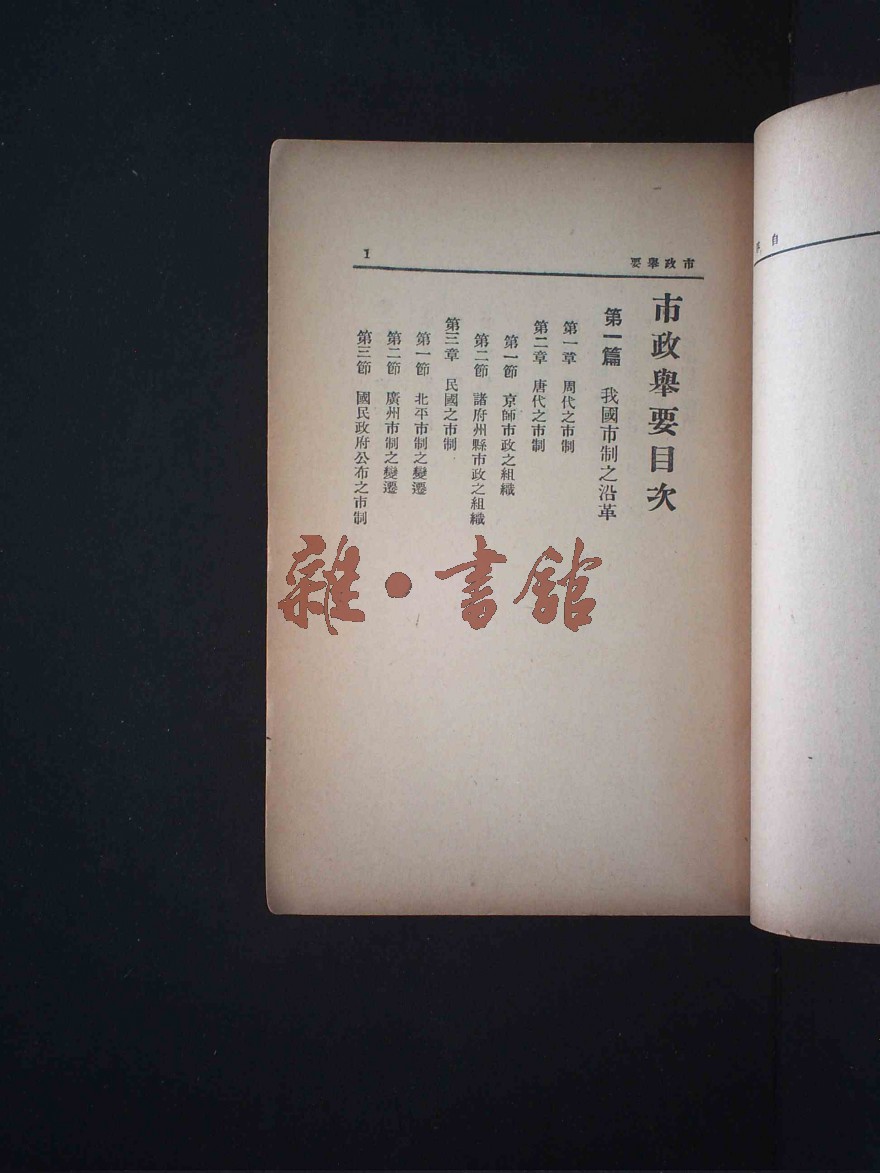 市政舉要
1
市政舉要目次
第一篇 我國市制之沿革
第一章 周代之市制
第二章 唐代之市制
第一節 京師市政之組織
第二節 諸府州縣市政之組織
第三章 民國之市制
第一節 北平市制之變遷
第二節 廣州市制之變遷
第三節 國民政府公布之市制
雜·書館
自